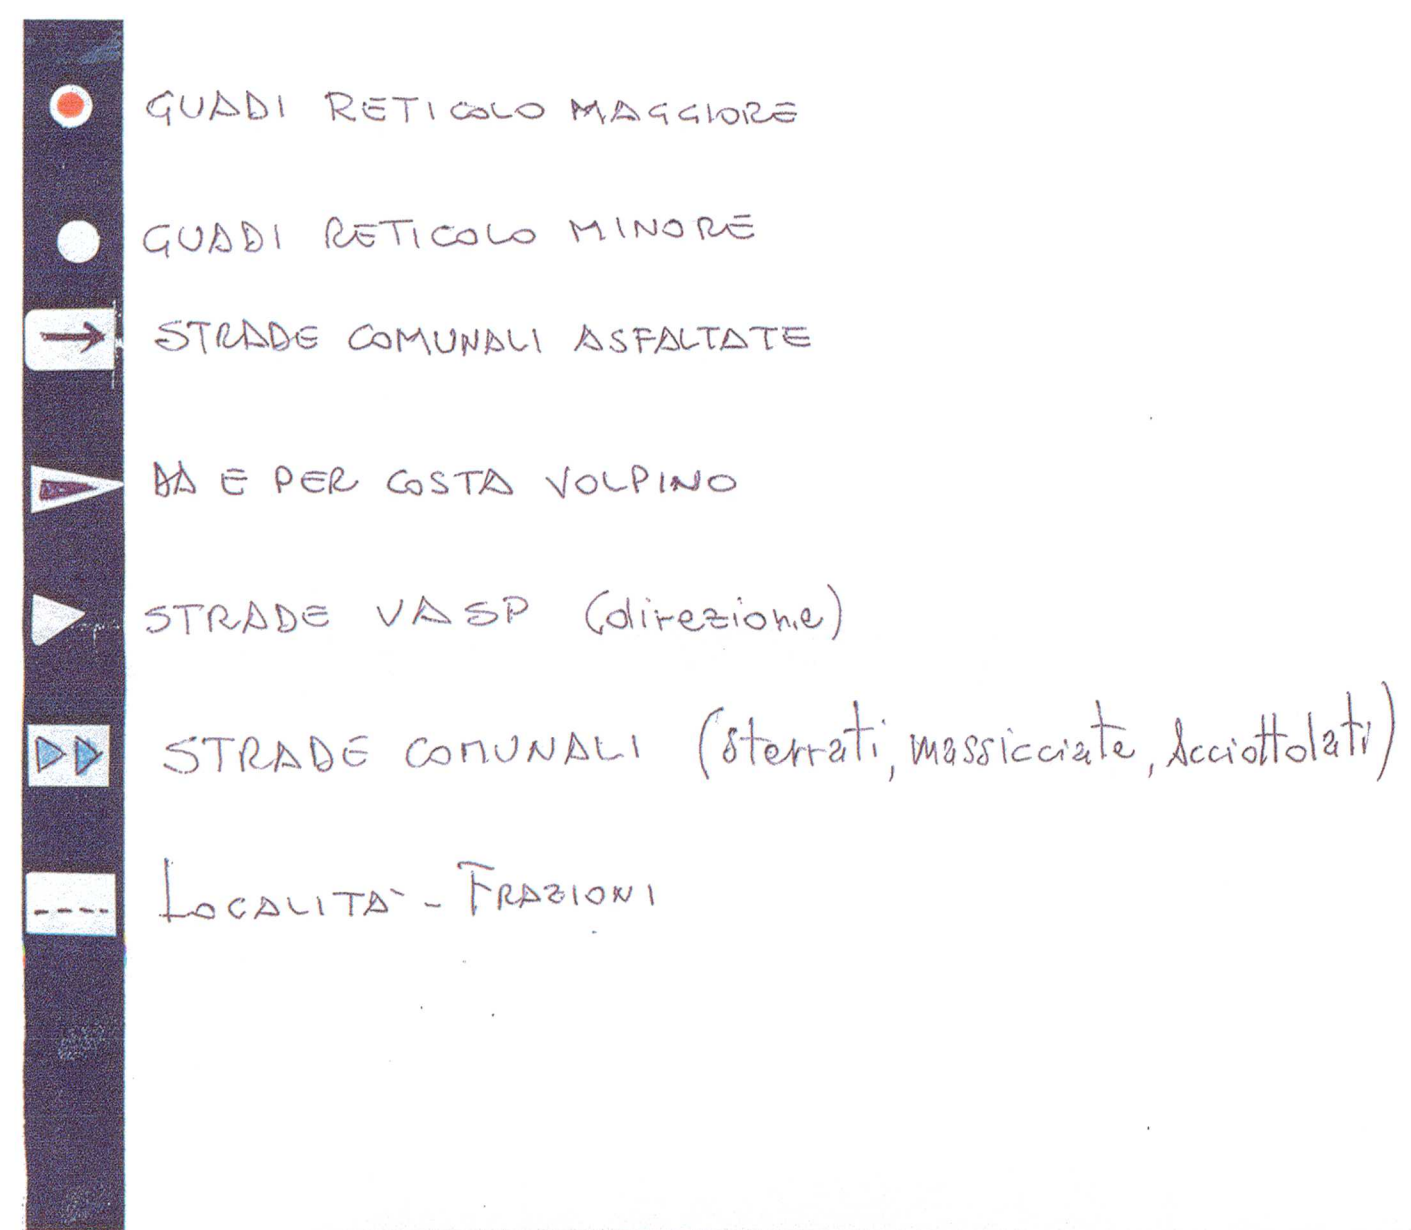 GUADI RETICOLO MAGGIORE
GUADI RETICOLO MINORE
STRADE COMUNALI ASFALTATE
DA E PER COSTA VOLPINO
STRADE VASP (direzione)
STRADE COMUNALI (sterrati, massicciate, Acciottolati)
LOCALITA` - FRAZIONI